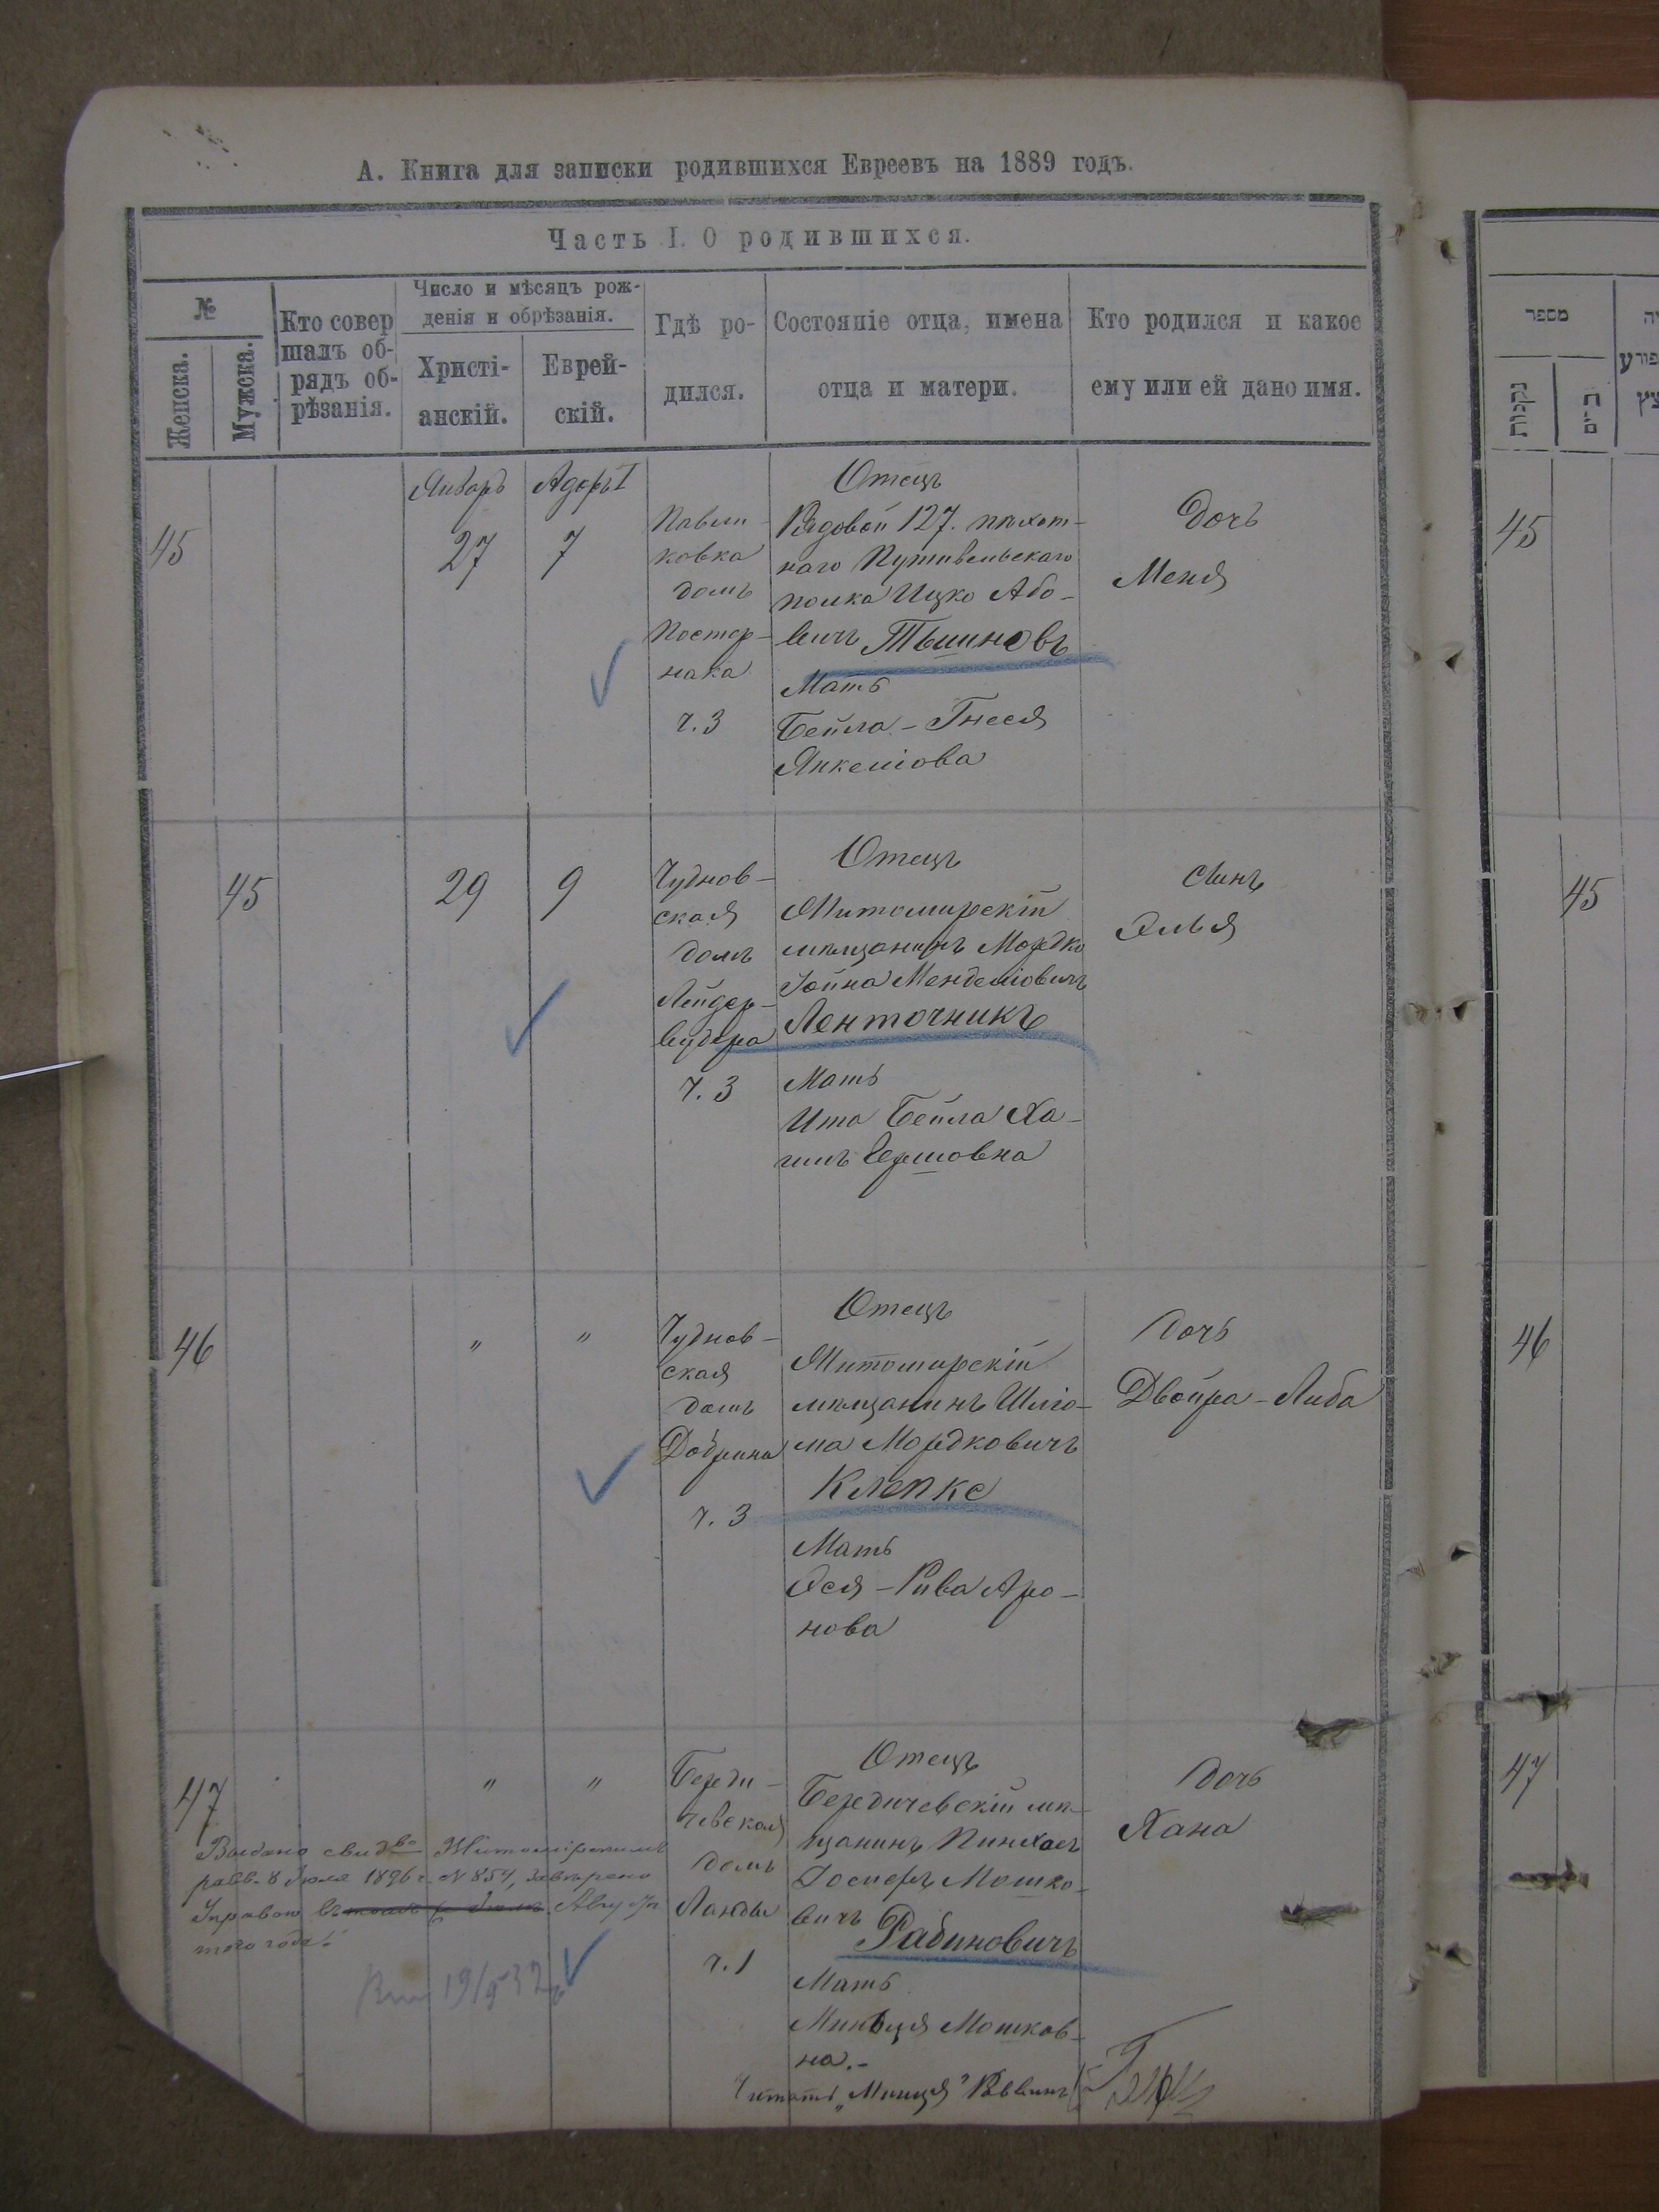 А. Книга для записки родившихся Евреевъ на 1889 годъ.
Часть I. О родившихся.
№
Женска.
Мужска.
Кто совер
шалъ об-
рядъ об-
рѣзанія.
Число и мѣсяцъ рож-
денія и обрѣзанія.
Христі-
анскій.
Еврей-
скій.
Гдѣ ро-
дился.
Состояніе отца, имена
отца и матери.
Кто родился и какое
ему или ей дано имя.
45
Январь
27
Адоръ I
7
Павли-
ковка
домъ
Постер-
нака
ч. 3
Отецъ
Рядовой 127. пѣхот-
наго Путивльскаго
полка Ицко Або-
вичъ Тышновъ
Мать
Бейла-Гнеся
Янкелiова
Дочь
Меня
45
29
9
Чуднов-
ская
домъ
Лейдер-
ч. 3
Отецъ
Житомирскій
мѣщанинъ Мордко
Іойна Менделіовичъ
Ленточникъ
Мать
Ита Бейла Ха-
имъ Гершовна
Сынъ
Элья
46
"
"
Чуднов-
ская
домъ
Добрина
ч. 3
Отецъ
Житомирскій
мѣщанинъ Шліо-
ма Мордковичъ
Клепке
Мать
Эся-Рива Аро-
нова
Дочь
Двойра-Либа
47
"
"
Берди-
чевская
домъ
Ланды
ч. 1
Отецъ
Бердичевскій мѣ-
щанинъ Пинхасъ
Іосифъ Мошко-
вичъ Рабиновичъ
Мать
Миньця Мошков-
на.-
Читать "Минця" Раввинъ
Дочь
Хана
Выдано свидво Житомірскимъ
равв. 8 Іюля 1896 г. N 854, завѣрено
Управою Августа
того года.
19/9 32
מספר
נקבות
זכרים
45
45
46
47